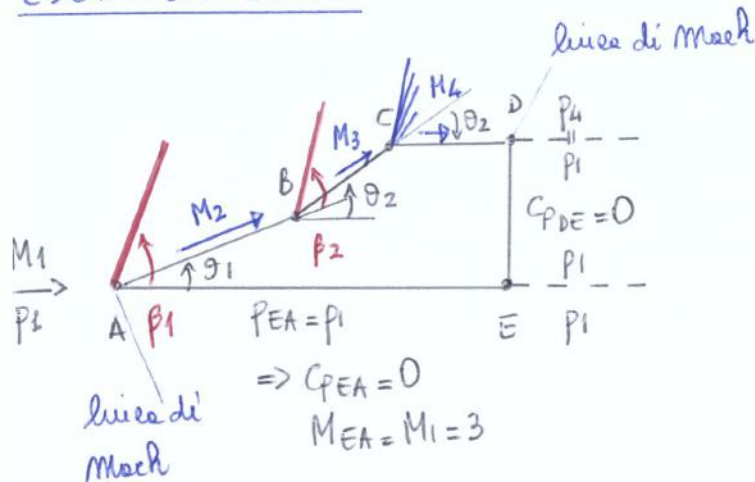 linea di Mach
C
M4
D
θ2
P4
P1
M3
B
M2
θ2
C_PDE = 0
β2
M1
P1
θ1
A
β1
P_EA = P1
E
P1
P1
=> C_PEA = 0
M_EA = M1 = 3
linea di
Mach